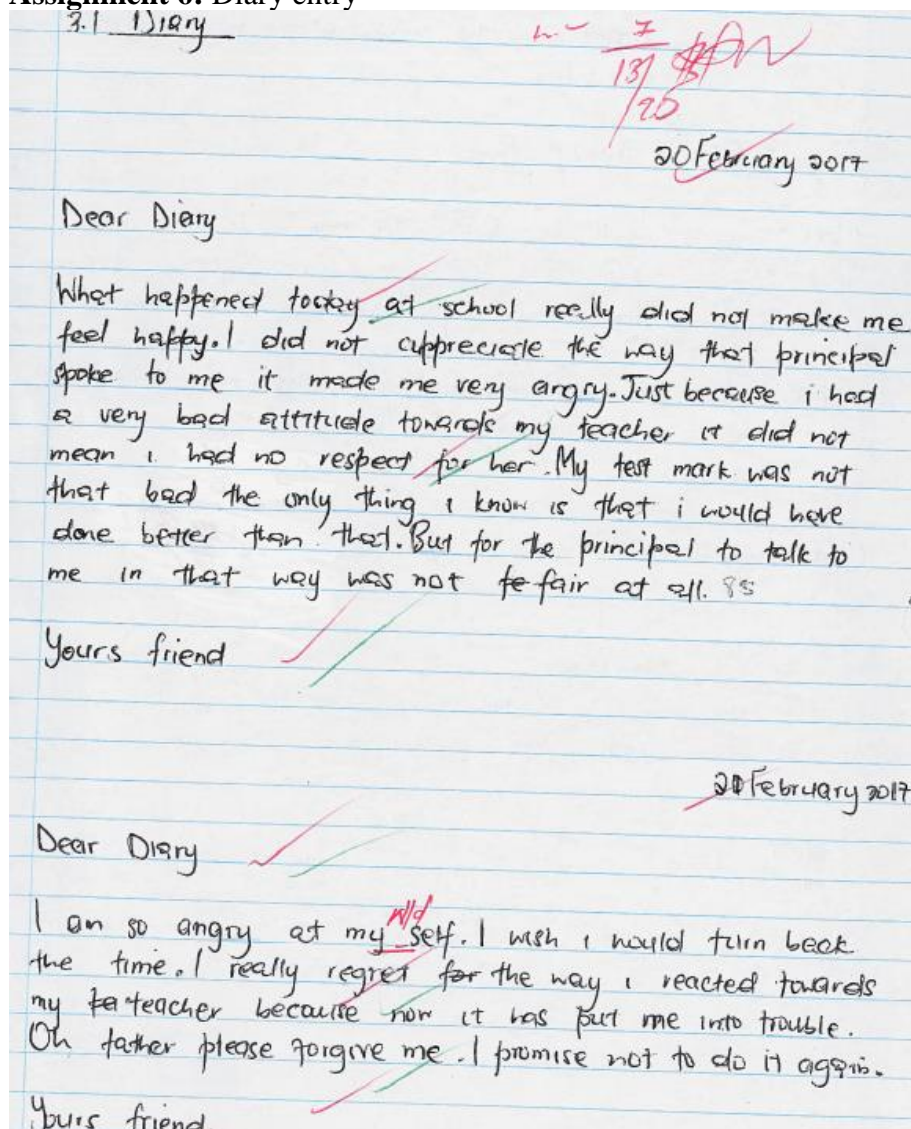 Assignment 6: Diary entry
3.1 Diary
7
13/
/20
20 February 2017
Dear Diary
What happened today at school really did not make me
feel happy. I did not appreciate the way that principal
spoke to me it made me very angry. Just because i had
a very bad attitude towards my teacher it did not
mean i had no respect for her. My test mark was not
that bad the only thing i know is that i would have
done better than that. But for the principal to talk to
me in that way was not fe fair at all. 85
Yours friend
20 February 2017
Dear Diary
w/d
I am so angry at my self. I wish i would turn back
the time. I really regret for the way i reacted towards
my te teacher because now it has put me into trouble.
Oh father please forgive me. I promise not to do it again.
Yours friend.